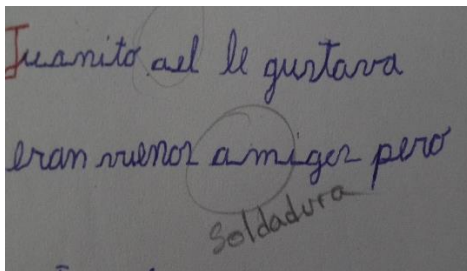 Juanito ael le gustava
eran vuenos amigos pero
Soldadura